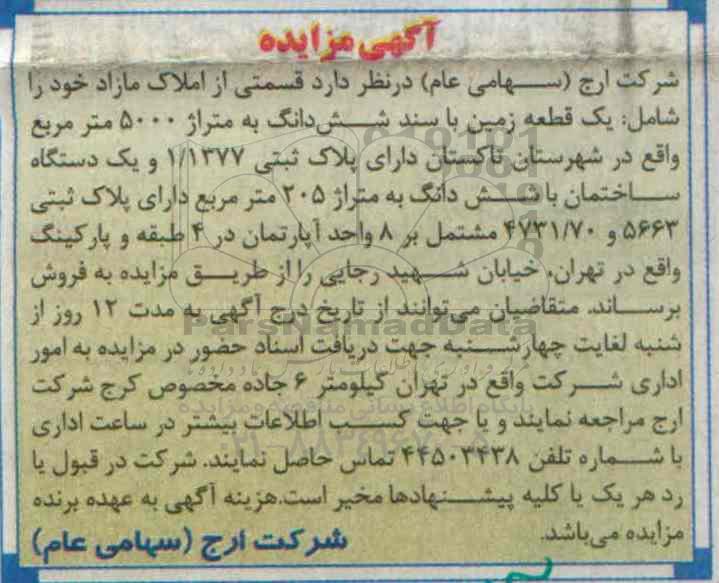 آگهی مزایده
شرکت ارج (سهامی عام) درنظر دارد قسمتی از املاک مازاد خود را
شامل: یک قطعه زمین با سند شش‌دانگ به متراژ ۵۰۰۰ متر مربع
واقع در شهرستان تاکستان دارای پلاک ثبتی ۱/۱۳۷۷ و یک دستگاه
ساختمان با شش دانگ به متراژ ۲۰۵ متر مربع دارای پلاک ثبتی
۵۶۶۳ و ۴۷۳۱/۷۰ مشتمل بر ۸ واحد آپارتمان در ۴ طبقه و پارکینگ
واقع در تهران، خیابان شهید رجایی را از طریق مزایده به فروش
برساند. متقاضیان می‌توانند از تاریخ درج آگهی به مدت ۱۲ روز از
ParsNamadData
شنبه لغایت چهارشنبه جهت دریافت اسناد حضور در مزایده به امور
اداری شرکت واقع در تهران کیلومتر ۶ جاده مخصوص کرج شرکت
پایگاه اطلاع رسانی مناقصه و مزایده
ارج مراجعه نمایند و یا جهت کسب اطلاعات بیشتر در ساعت اداری
با شماره تلفن ۴۴۵۰۳۴۳۸ تماس حاصل نمایند. شرکت در قبول یا
رد هر یک یا کلیه پیشنهادها مخیر است.هزینه آگهی به عهده برنده
مزایده می‌باشد.
شرکت ارج (سهامی عام)